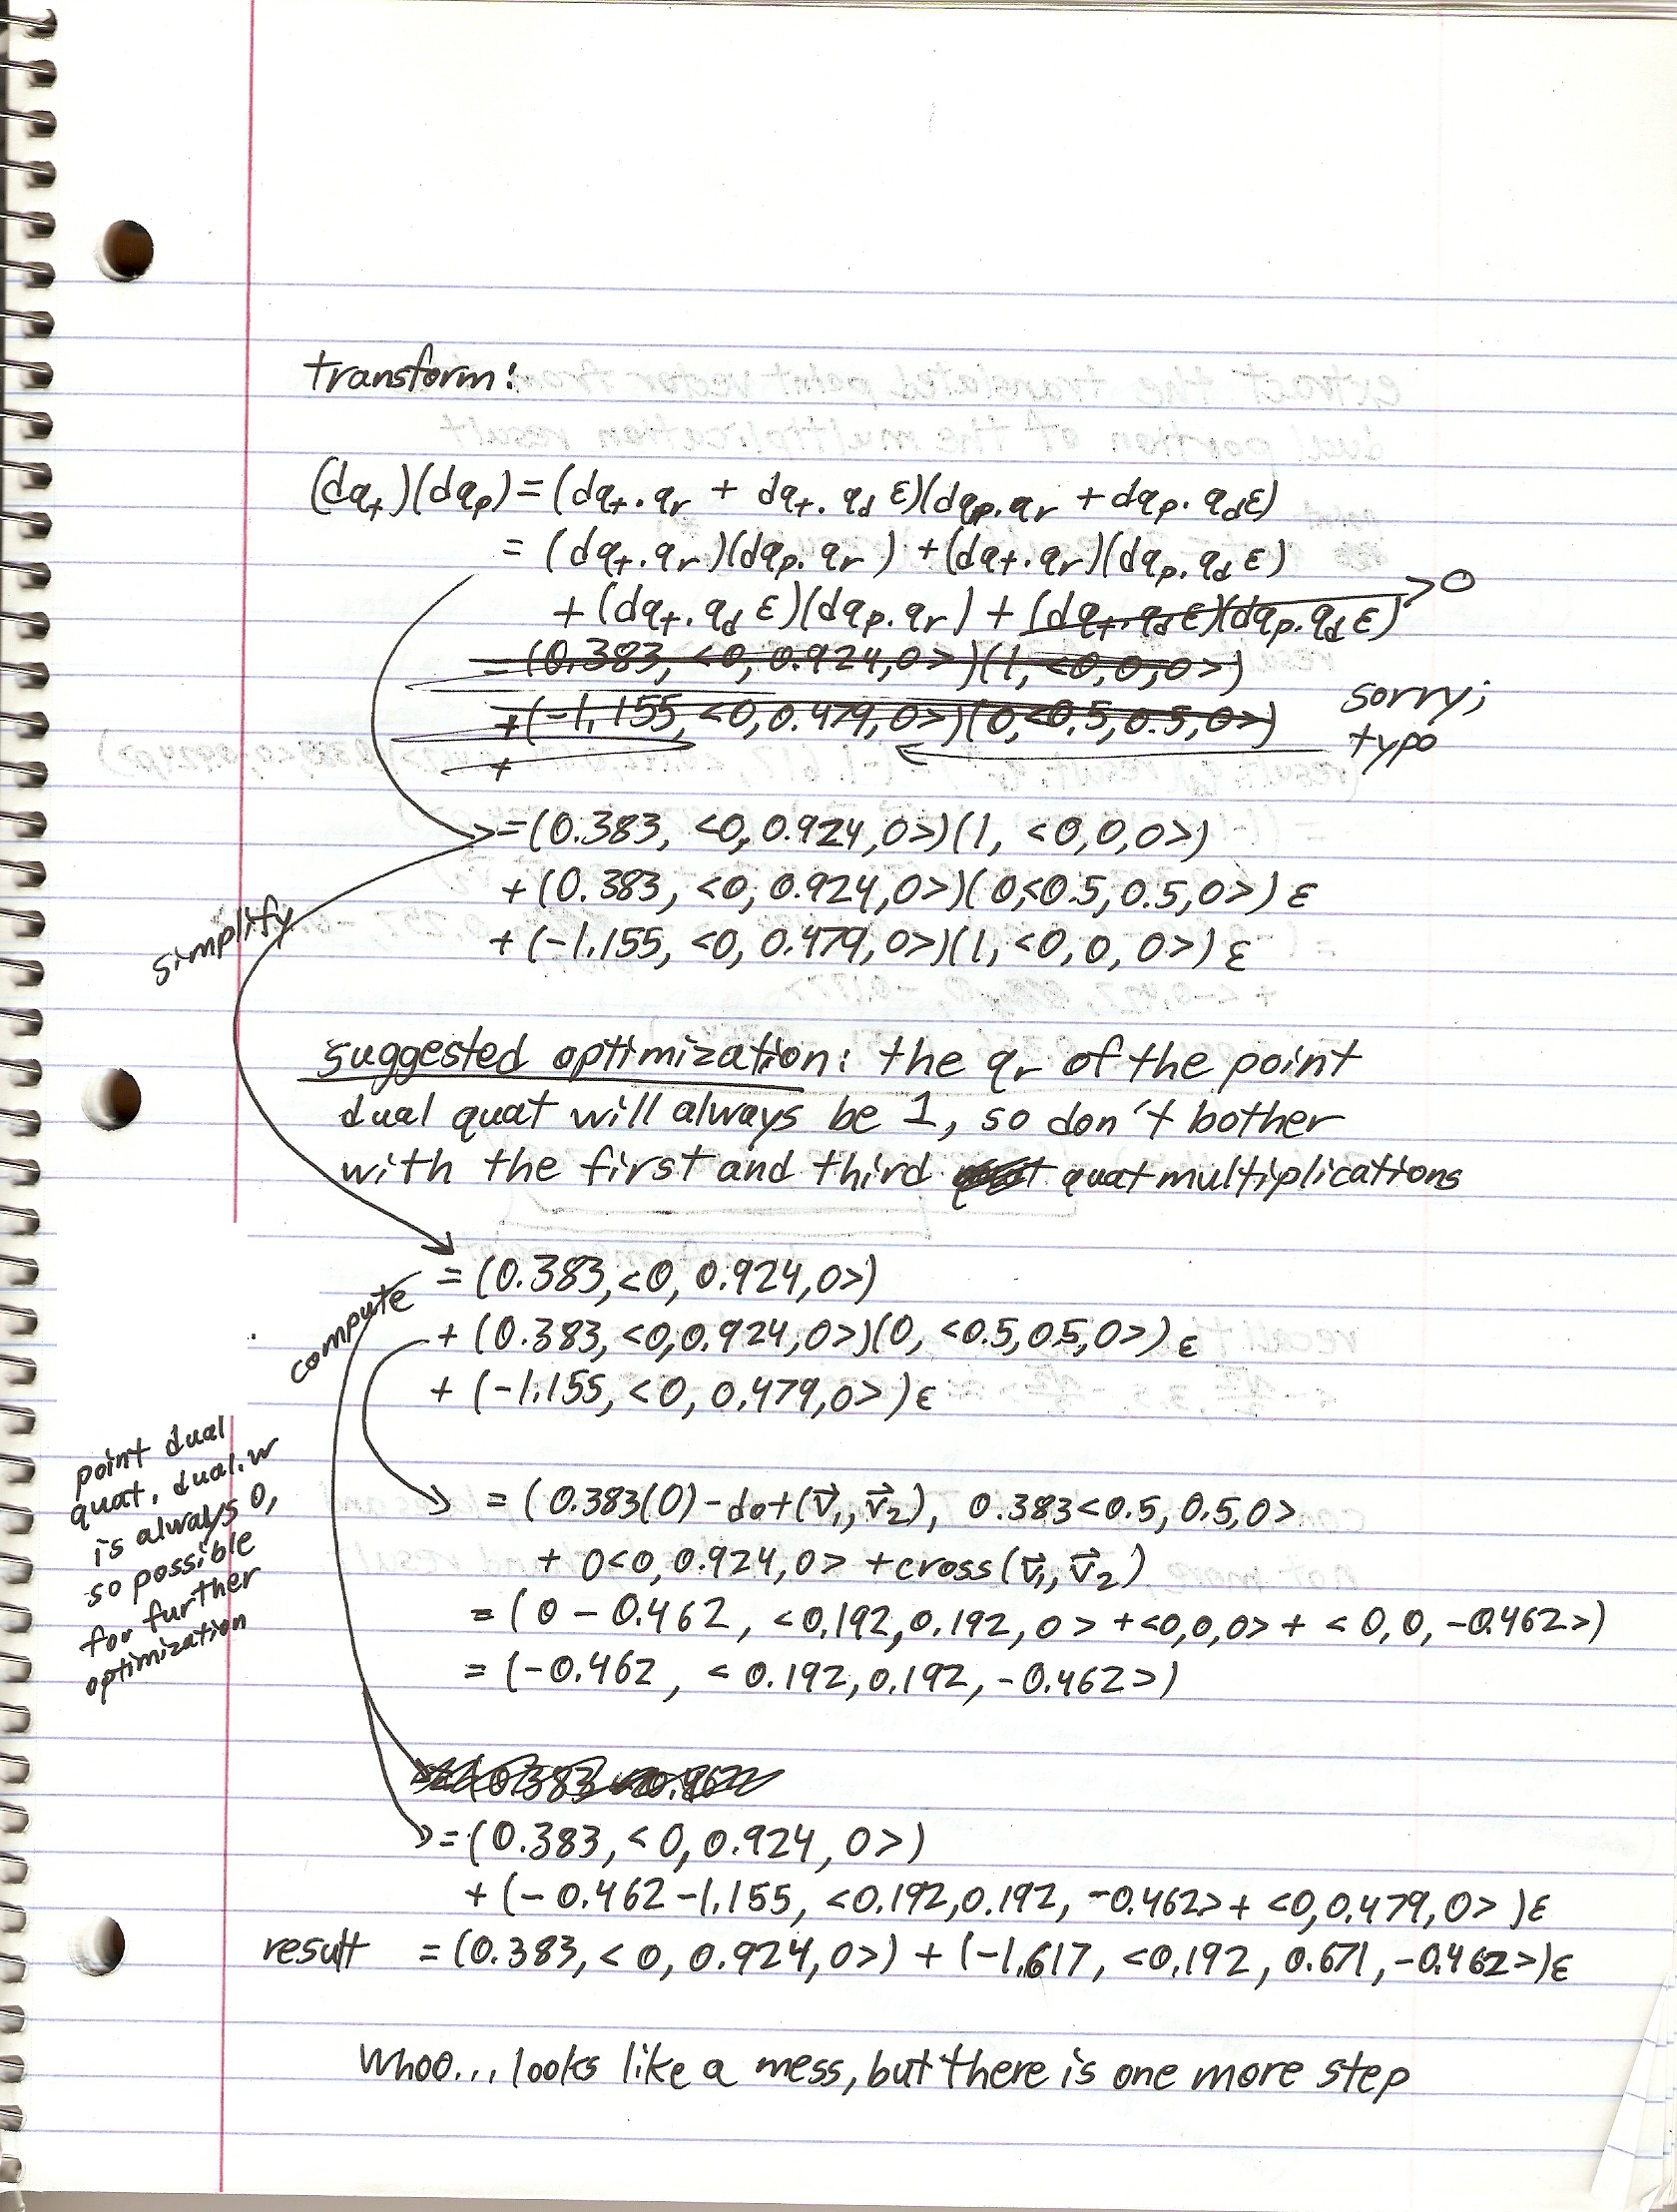 transform:
(dq_t)(dq_p) = (dq_t.q_r + dq_t.q_d ε)(dq_p.q_r + dq_p.q_d ε)
= (dq_t.q_r)(dq_p.q_r) + (dq_t.q_r)(dq_p.q_d ε)
+ (dq_t.q_d ε)(dq_p.q_r) + (dq_t.q_d ε)(dq_p.q_d ε) → 0
= (0.383, <0, 0.924, 0>)(1, <0,0,0>)
+ (-1.155, <0, 0.479, 0>)(0, <0.5, 0.5, 0>)
+
sorry;
typo
= (0.383, <0, 0.924, 0>)(1, <0,0,0>)
+ (0.383, <0, 0.924, 0>)(0, <0.5, 0.5, 0>) ε
+ (-1.155, <0, 0.479, 0>)(1, <0, 0, 0>) ε
simplify
suggested optimization: the q_r of the point
dual quat will always be 1, so don't bother
with the first and third quat multiplications
= (0.383, <0, 0.924, 0>)
compute
+ (0.383, <0, 0.924, 0>)(0, <0.5, 0.5, 0>) ε
+ (-1.155, <0, 0.479, 0>) ε
point dual
quat. dual.w
is always 0,
so possible
for further
optimization
= (0.383(0) - dot(v⃗₁, v⃗₂), 0.383<0.5, 0.5, 0>
+ 0<0, 0.924, 0> + cross(v⃗₁, v⃗₂)
= (0 - 0.462, <0.192, 0.192, 0> + <0,0,0> + <0, 0, -0.462>)
= (-0.462, <0.192, 0.192, -0.462>)
= (0.383, <0, 0.924, 0>)
+ (-0.462 - 1.155, <0.192, 0.192, -0.462> + <0, 0.479, 0>) ε
result = (0.383, <0, 0.924, 0>) + (-1.617, <0.192, 0.671, -0.462>) ε
Whoo... looks like a mess, but there is one more step